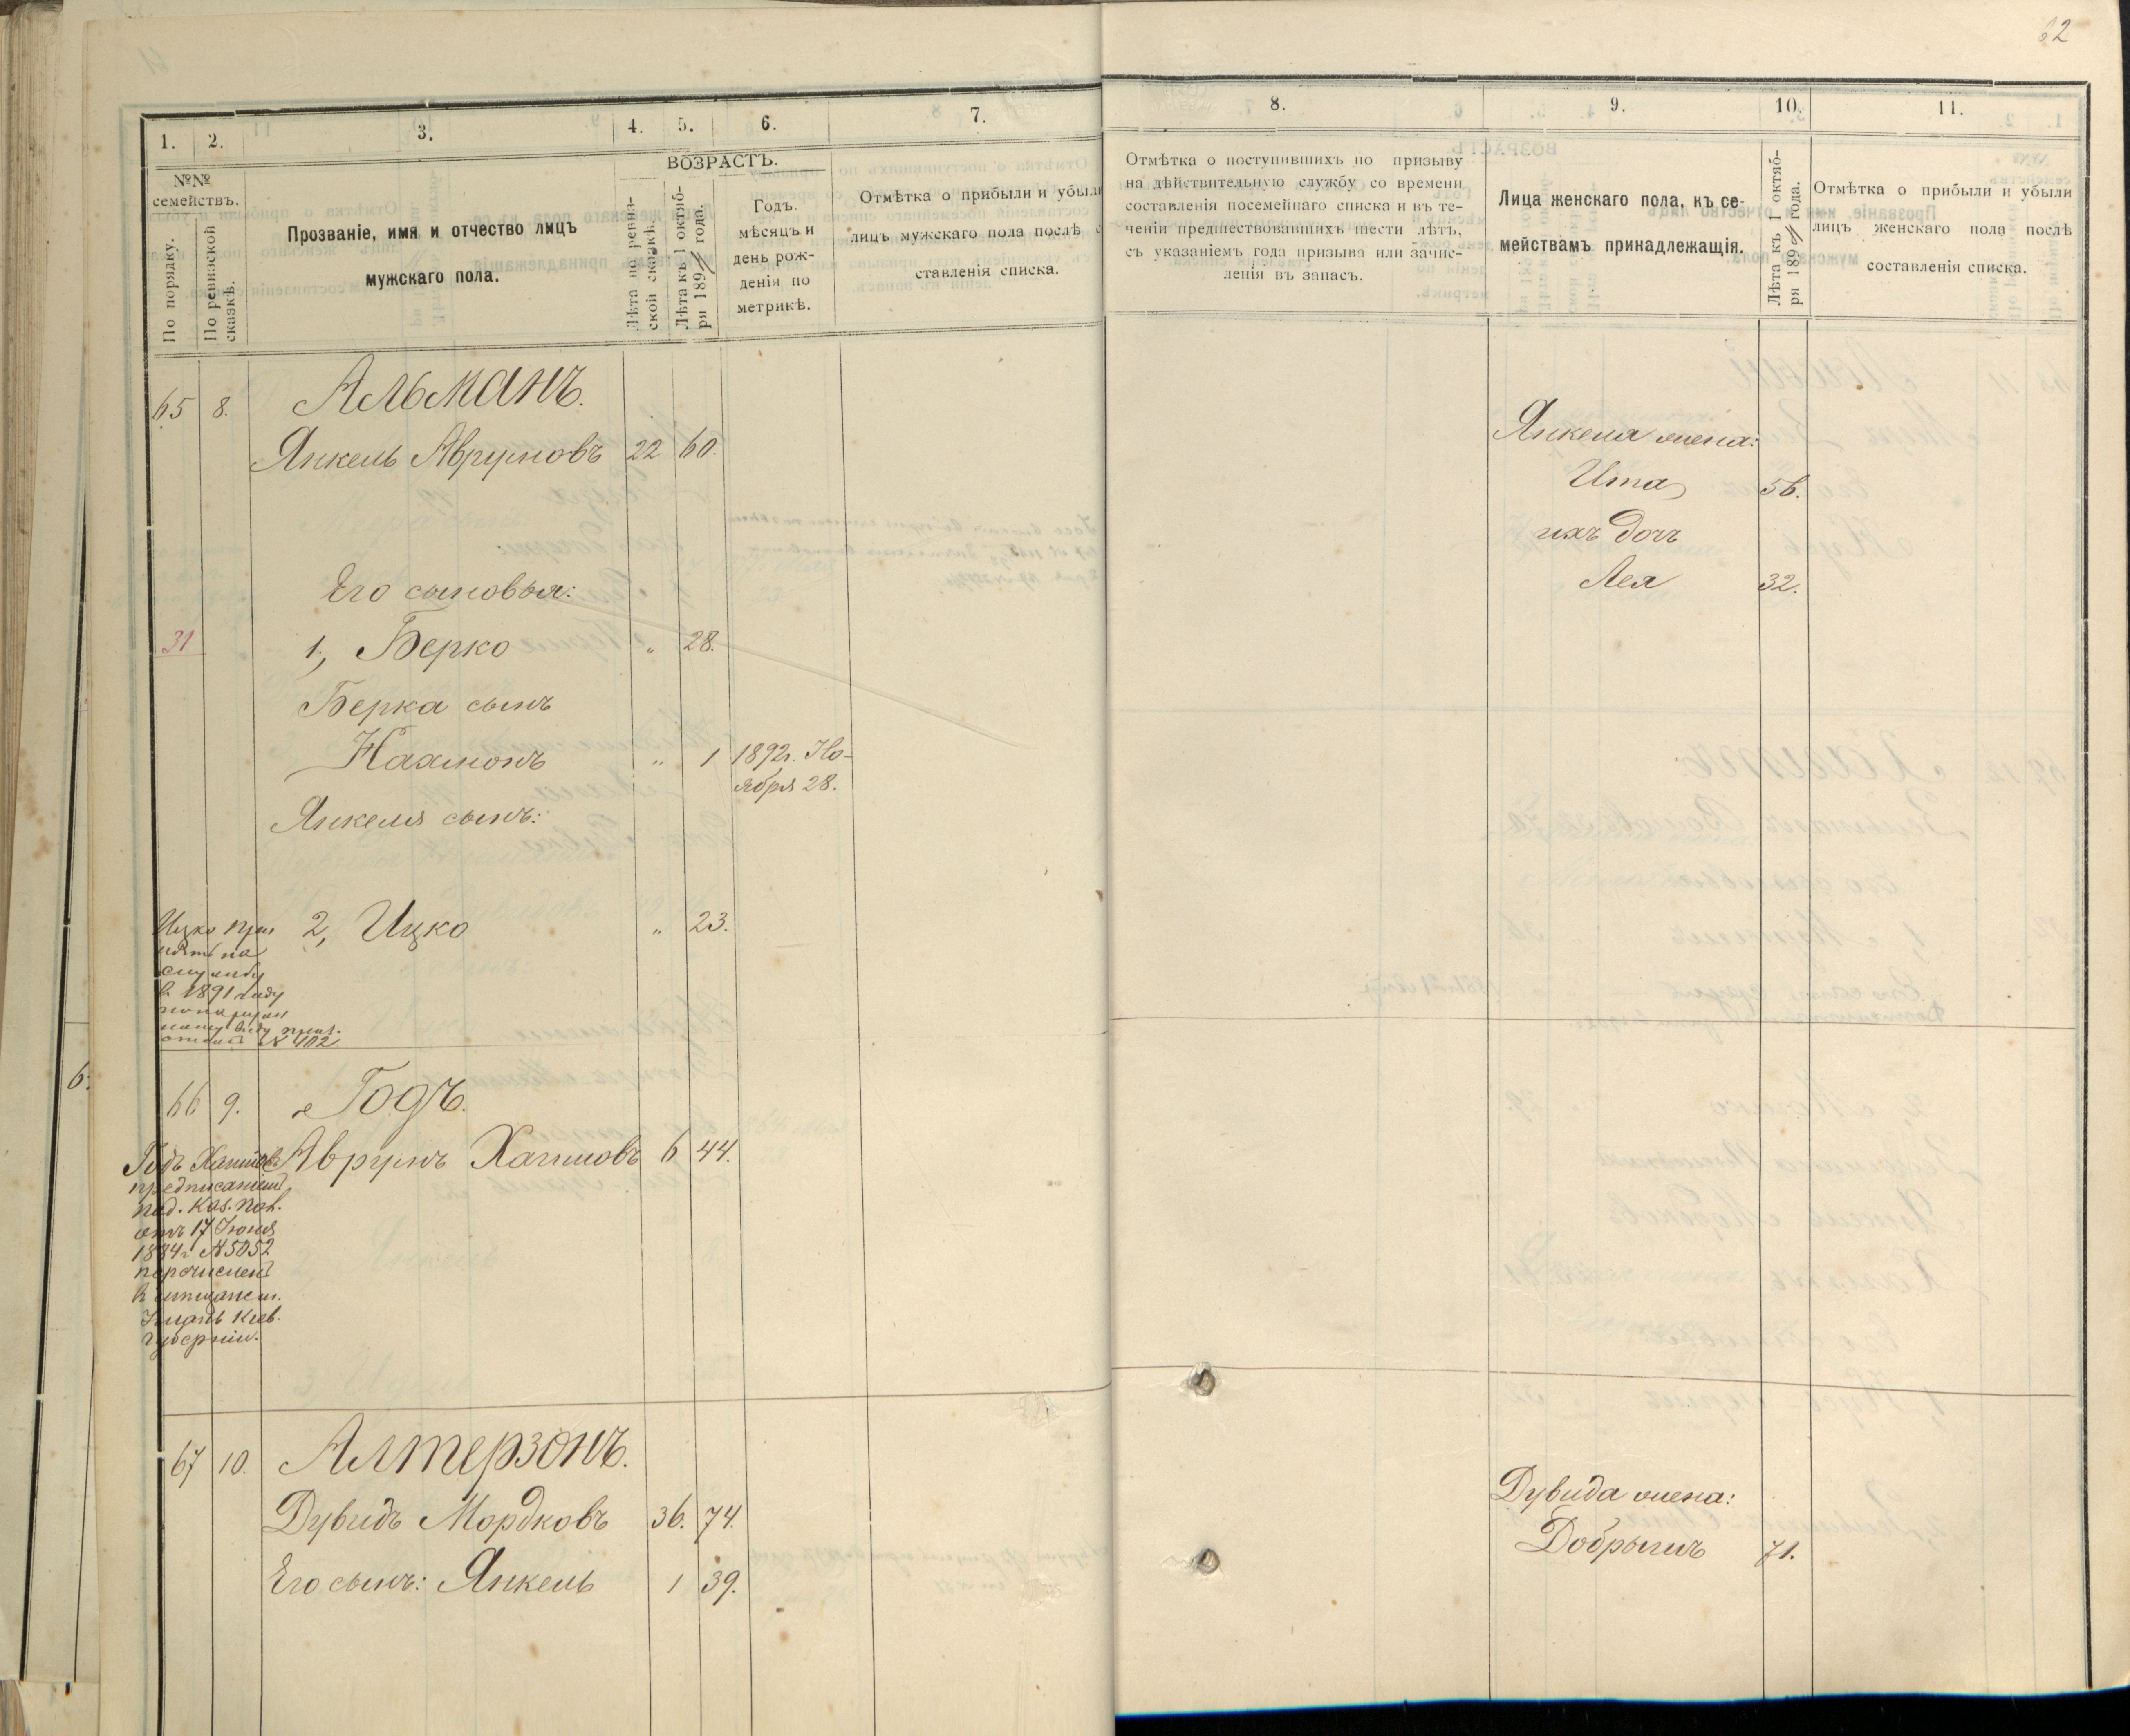 62
1.
2.
3.
4.
5.
6.
7.
8.
9.
10.
11.
№№
семействъ.
По порядку.
По ревизской
сказкѣ.
Прозваніе, имя и отчество лицъ
мужскаго пола.
ВОЗРАСТЪ.
Лѣта по ревиз-
ской сказкѣ.
Лѣта къ 1 октяб-
ря 189 года.
Годъ.
мѣсяцъ и
день рож-
денія по
метрикѣ.
Отмѣтка о прибыли и убыли
лицъ мужскаго пола послѣ с
ставленія списка.
Отмѣтка о поступившихъ по призыву
на дѣйствительную службу со времени
составленія посемейнаго списка и въ те-
ченіи предшествовавшихъ шести лѣтъ,
съ указаніемъ года призыва или зачис-
ленія въ запасъ.
Лица женскаго пола, къ се-
мействамъ принадлежащія.
Лѣта къ 1 октяб-
ря 189 года.
Отмѣтка о прибыли и убыли
лицъ женскаго пола послѣ
составленія списка.
65 8. Альманъ.
Янкель Аврумовъ 22 60.
Янкеля жена:
Ита 56.
ихъ дочь
Лея 32.
Его сыновья:
31 1, Берко " 28.
Берка сынъ
Нахмонъ " 1 1892г. Но-
ября 28.
Янкеля сынъ:
2, Ицко " 23.
Ицко при
нятъ на
службу
в 1891 году
№ 402
6.
66 9. Годъ.
Аврумъ Хаимовъ 6 44.
Годъ Хаимовъ
предписаніемъ
под. Каз. Пал.
отъ 17 Іюня
1884г. № 5052
перочисленъ
в мѣщане м.
Киев.
губерніи.
67 10. Алтерзонъ.
Дувидъ Мордковъ 36. 74.
Его сынъ: Янкель 1 39.
Дувида жена:
Добрышъ 71.